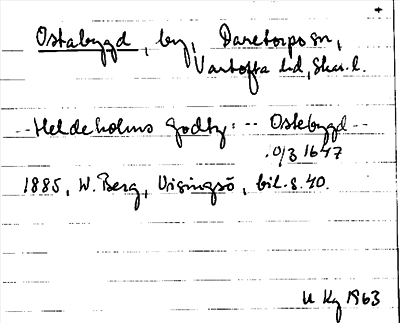 +
Ostabygd, by, Daretorps sn,
Vartofta hd, Skar. l.
-- Heldeholms godtz: -- Ostebygd --
0/3 1647
1885, W. Berg, Visingsö, bil. s. 40.
U Kg 1963